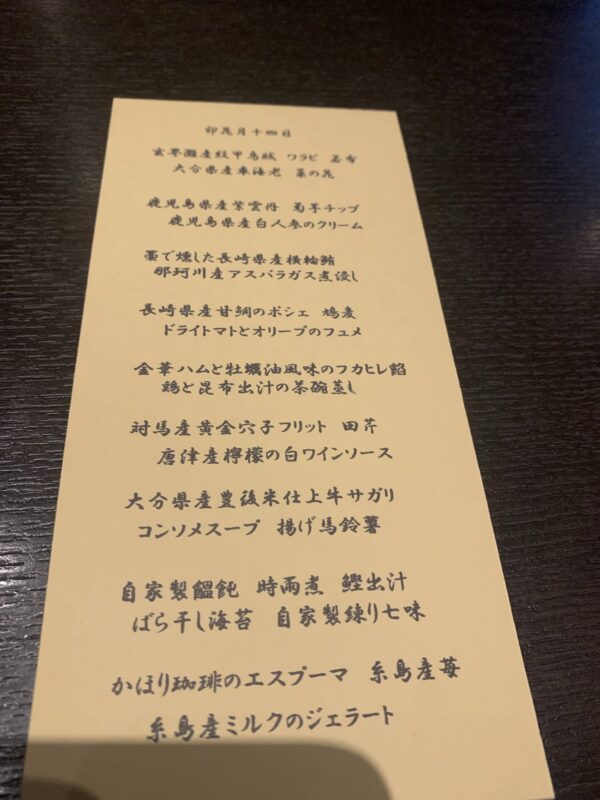 卯花月十四日
玄界灘産紋甲烏賊 ワラビ 若布
大分県産車海老 菜の花
鹿児島県産紫雲丹 菊芋チップ
鹿児島県産白人参のクリーム
藁で燻した長崎県産横輪鮪
那珂川産アスパラガス煮浸し
長崎県産甘鯛のポシェ 鳩麦
ドライトマトとオリーブのフュメ
金華ハムと牡蠣油風味のフカヒレ餡
鶏と昆布出汁の茶碗蒸し
対馬産黄金穴子フリット 田芹
唐津産檸檬の白ワインソース
大分県産豊後米仕上牛サガリ
コンソメスープ 揚げ馬鈴薯
自家製饂飩 時雨煮 鰹出汁
ばら干し海苔 自家製練り七味
かほり珈琲のエスプーマ 糸島産苺
糸島産ミルクのジェラート